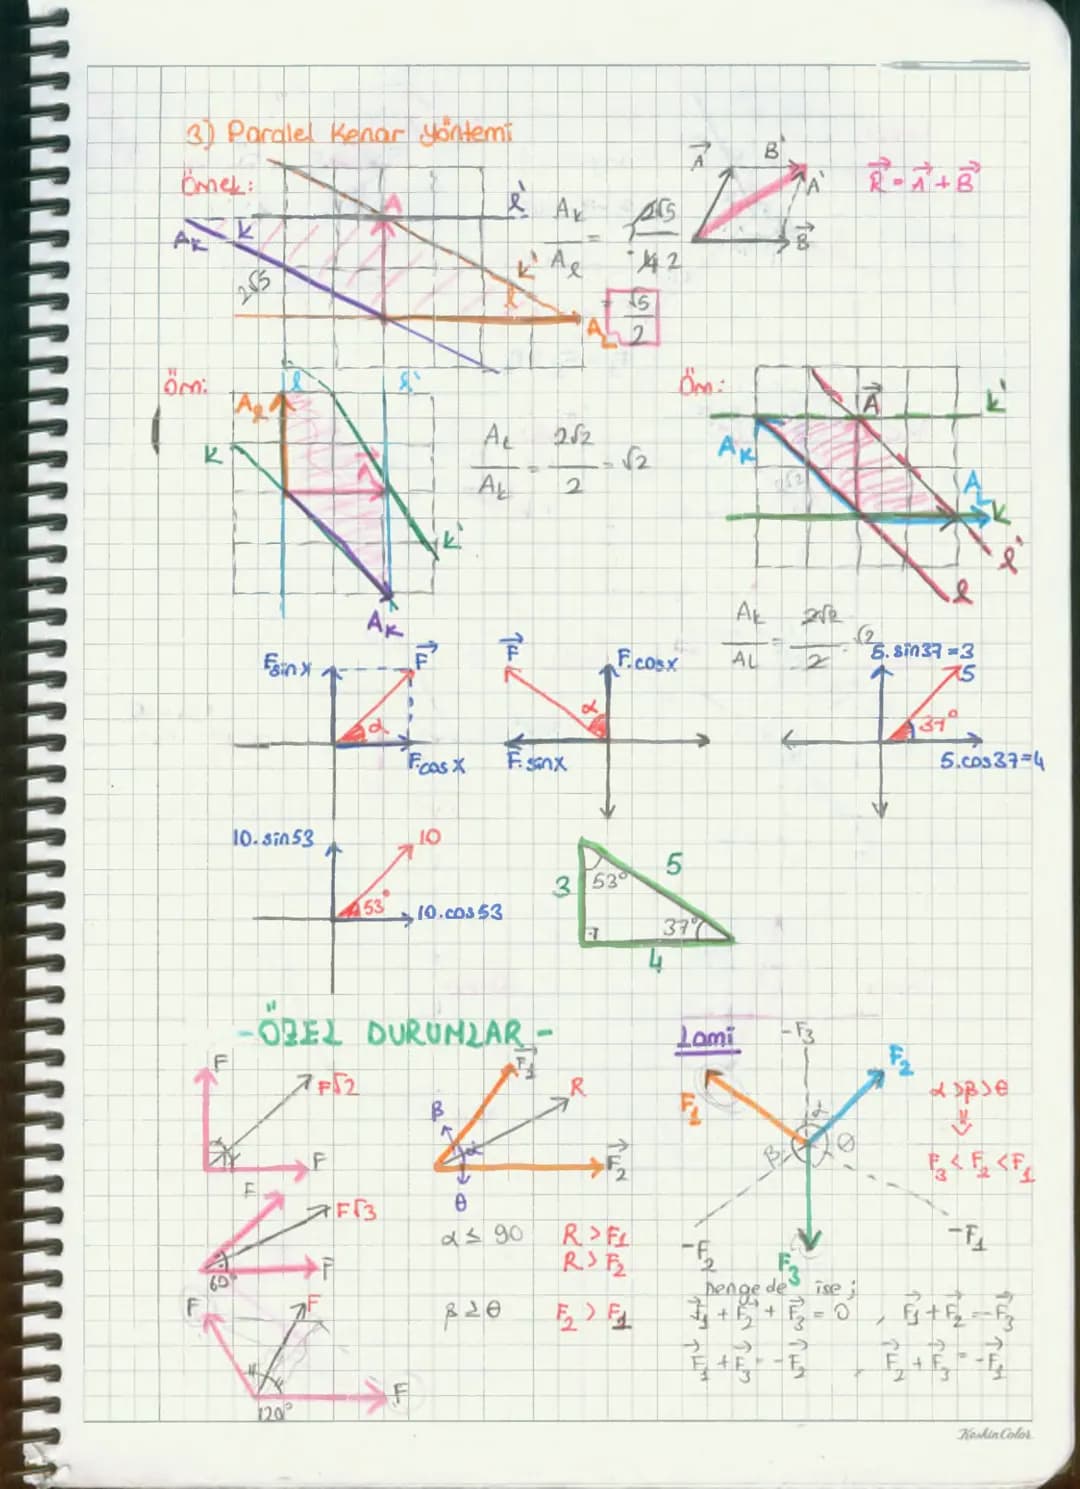 3) Paralel Kenar Yöntemi
Örnek:
A
l'
k
A_K
2√5
k'
l
A_L
A_k/A_l = 2√5/4 2
= √5/2
A⃗ B'
A'
B⃗
R⃗ = A⃗ + B⃗
Örn:
l
l'
A_l
k
k'
A_K
A_k/A_k = 2√2/2 = √2
Örn:
A⃗
k'
A_K
2√2
A_L
k
l'
l
A_k/A_L = 2√2/2 = √2
F sinx
F⃗
α
F.cosx
F⃗
F.cosx
α
F.sinx
5.sin37=3
5
37°
5.cos37=4
10.sin53
10
53°
10.cos53
3
5
53°
37°
4
-ÖZEL DURUMLAR-
F
F√2
F
F
F√3
60°
F
F
F
120°
F
F⃗1
R
β
α
θ
F⃗2
α ≤ 90
R > F1
R > F2
β ≥ θ
F2 > F1
Lami
-F3
F1
F2
α
β
θ
-F2
-F1
F3
α>β>θ
⇓
F3 < F2 < F1
dengede ise;
F⃗1 + F⃗2 + F⃗3 = 0 , F⃗1 + F⃗2 = -F⃗3
F⃗1 + F⃗3 = -F⃗2 , F⃗2 + F⃗3 = -F⃗1
KeskinColor